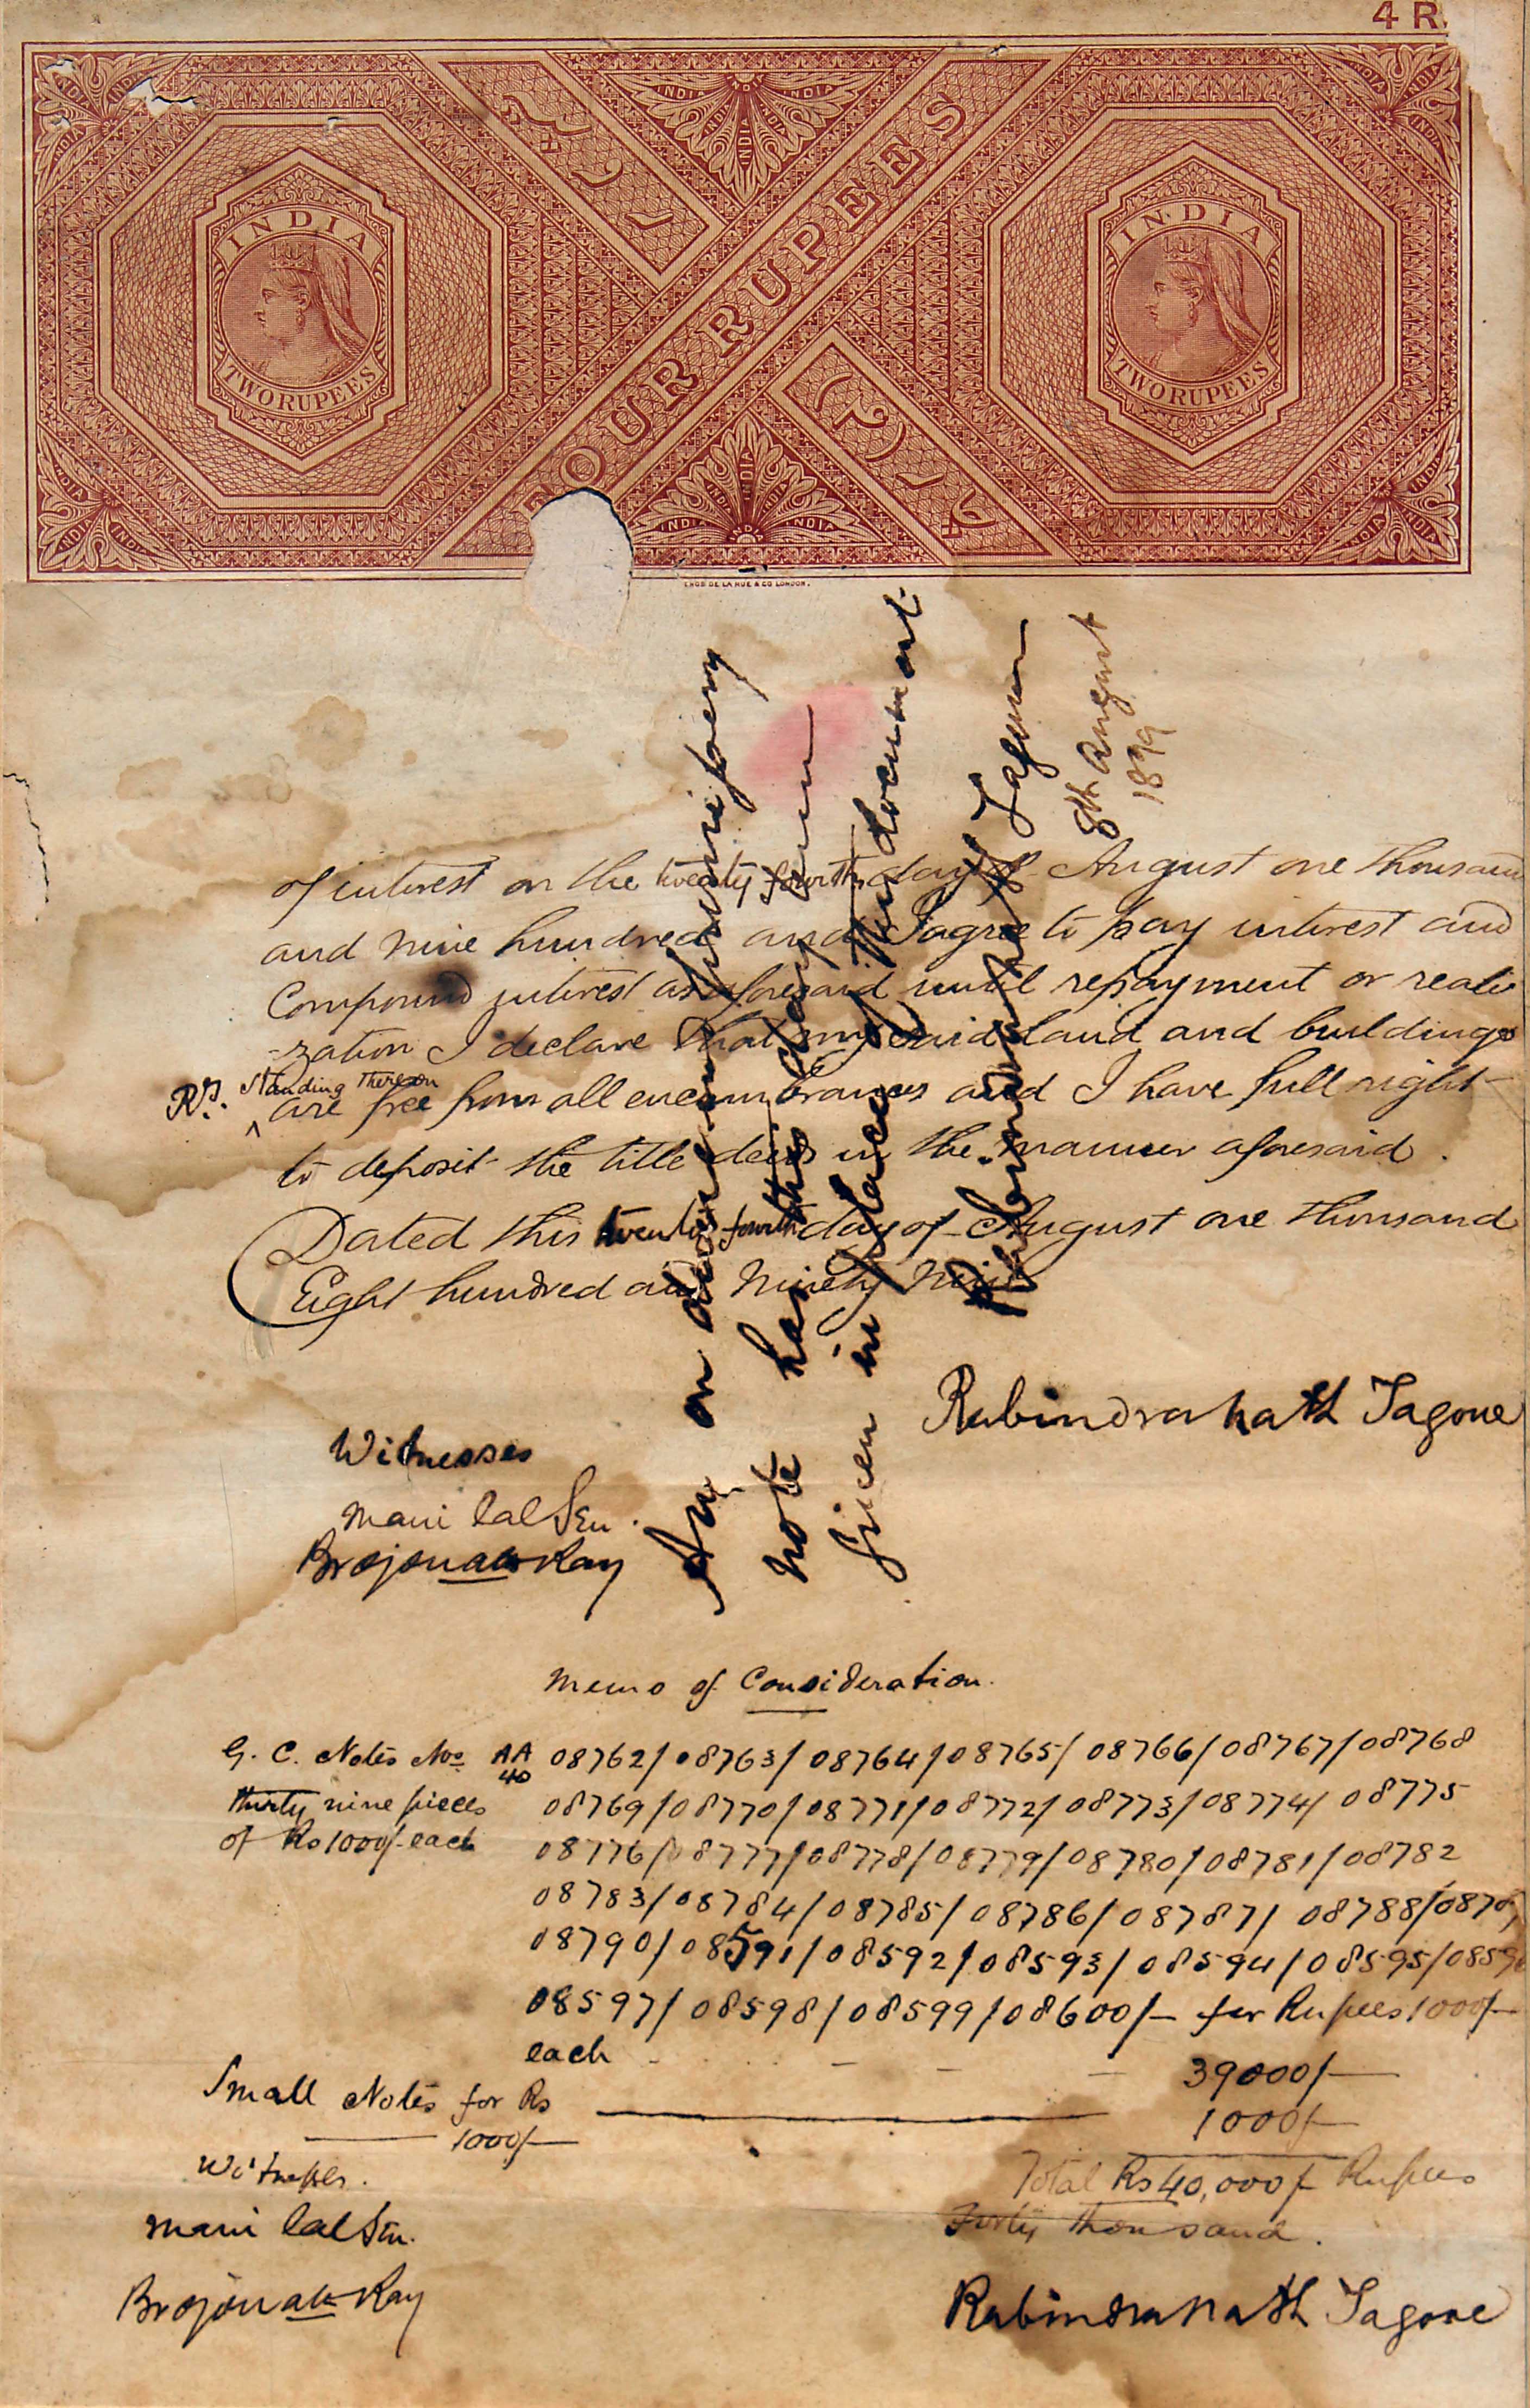 4 R.
INDIA
TWO RUPEES
FOUR RUPEES
INDIA
TWO RUPEES
THOS DE LA RUE & CO LONDON.
of interest on the twenty fourth day of August one thousand
and nine hundred and I agree to pay interest and
Compound interest as aforesaid until repayment or reali
-zation I declare that my said land and buildings
Rs. standing thereon
are free from all encumbrances and I have full right
to deposit the title deeds in the manner aforesaid.
Dated this twenty fourth day of August one thousand
Eight hundred and Ninety Nine
Rabindranath Tagore
Witnesses
Mani lal Sen.
Brojonath Ray
An on demand
note has this day
given in place of this document
Tagore
8th August
1899
Memo of Consideration.
G. C. Notes Nos AA 40 08762/08763/08764/08765/08766/08767/08768
thirty nine pieces 08769/08770/08771/08772/08773/08774/08775
of Rs 1000/- each 08776/08777/08778/08779/08780/08781/08782
08783/08784/08785/08786/08787/08788/0878
08790/08591/08592/08593/08594/08595/0859
08597/08598/08599/08600/- for Rupees 1000/-
each - 39000/-
Small Notes for Rs 1000/-
1000/-
Witnesses.
Total Rs 40,000/- Rupees
Forty thousand.
Mani lal Sen.
Brojonath Ray
Rabindranath Tagore